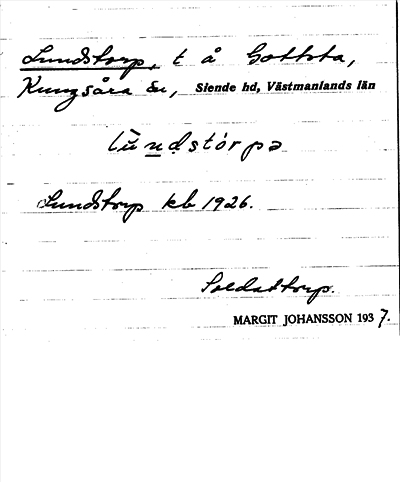 Lundstorp, t å Gottsta,
Kungsåra sn, Siende hd, Västmanlands län
lùndstórpa
Lundstorp kb 1926.
Soldattorp.
MARGIT JOHANSSON 1937.